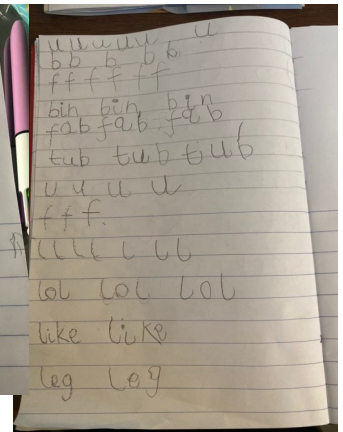 u u u u u u
b b b b b
f f f f f f
bin bin bin
fab fab fab
tub tub tub
u u u u
f f f.
l l l l l l l
lol lol lol
like like
leg leg